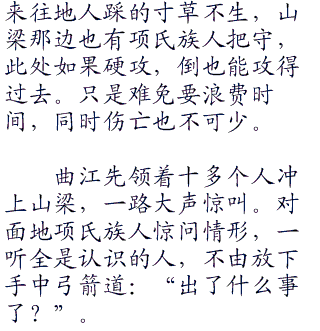 来往地人踩的寸草不生，山
梁那边也有项氏族人把守，
此处如果硬攻，倒也能攻得
过去。只是难免要浪费时
间，同时伤亡也不可少。
曲江先领着十多个人冲
上山梁，一路大声惊叫。对
面地项氏族人惊问情形，一
听全是认识的人，不由放下
手中弓箭道：“出了什么事
了？”。